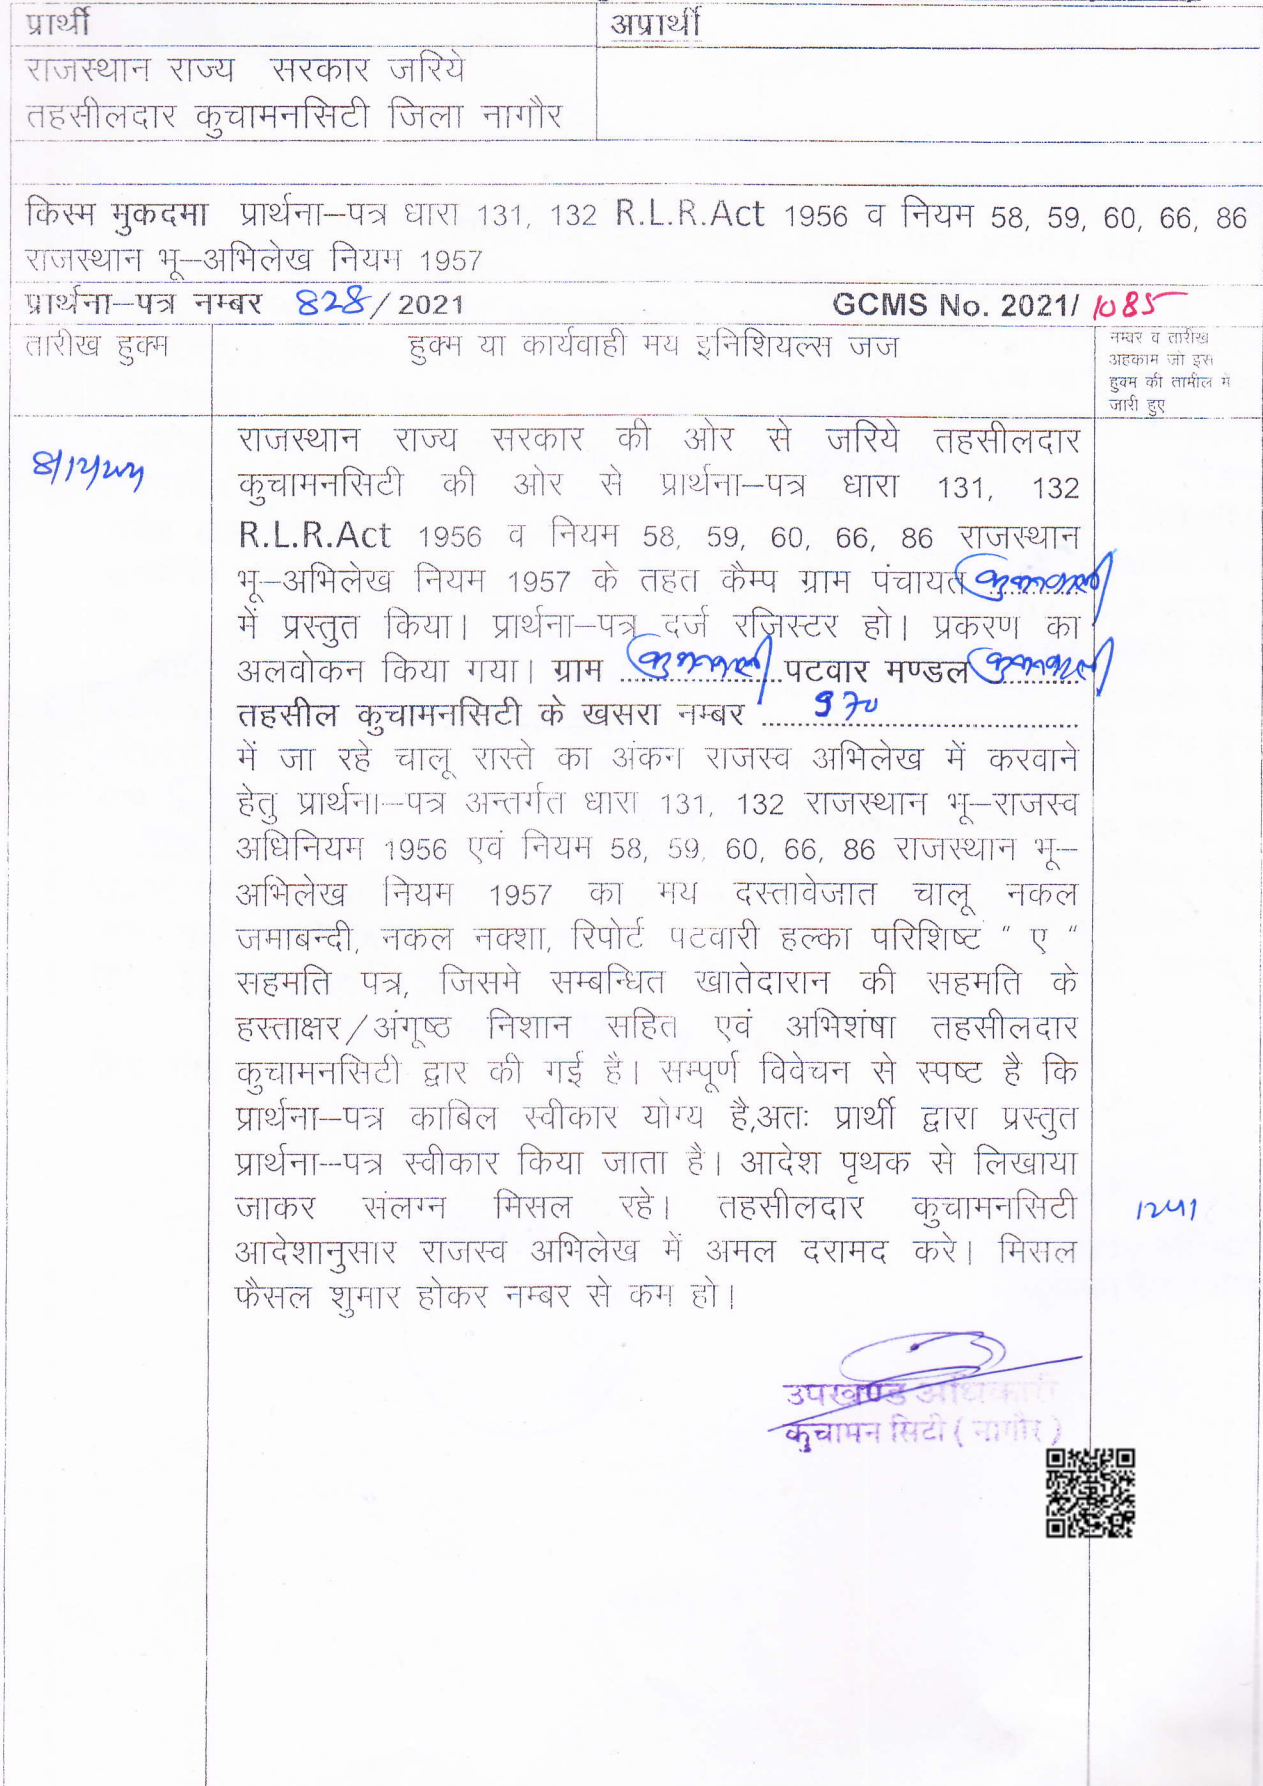 प्रार्थी अप्रार्थी
राजस्थान राज्य सरकार जरिये
तहसीलदार कुचामनसिटी जिला नागौर
किस्म मुकदमा प्रार्थना–पत्र धारा 131, 132 R.L.R.Act 1956 व नियम 58, 59, 60, 66, 86
राजस्थान भू–अभिलेख नियम 1957
प्रार्थना–पत्र नम्बर 828/2021 GCMS No. 2021/1085
तारीख हुक्म हुक्म या कार्यवाही मय इनिशियल्स जज
नम्बर व तारीख
अहकाम जो इस
हुक्म की तामील में
जारी हुए
राजस्थान राज्य सरकार की ओर से जरिये तहसीलदार
8/12/2021 कुचामनसिटी की ओर से प्रार्थना–पत्र धारा 131, 132
R.L.R.Act 1956 व नियम 58, 59, 60, 66, 86 राजस्थान
भू–अभिलेख नियम 1957 के तहत कैम्प ग्राम पंचायत
में प्रस्तुत किया। प्रार्थना–पत्र दर्ज रजिस्टर हो। प्रकरण का
अलवोकन किया गया। ग्राम पटवार मण्डल
तहसील कुचामनसिटी के खसरा नम्बर 970
में जा रहे चालू रास्ते का अंकन राजस्व अभिलेख में करवाने
हेतु प्रार्थना–पत्र अन्तर्गत धारा 131, 132 राजस्थान भू–राजस्व
अधिनियम 1956 एवं नियम 58, 59, 60, 66, 86 राजस्थान भू–
अभिलेख नियम 1957 का मय दस्तावेजात चालू नकल
जमाबन्दी, नकल नक्शा, रिपोर्ट पटवारी हल्का परिशिष्ट " ए "
सहमति पत्र, जिसमे सम्बन्धित खातेदारान की सहमति के
हस्ताक्षर/अंगूष्ठ निशान सहित एवं अभिशंषा तहसीलदार
कुचामनसिटी द्वार की गई है। सम्पूर्ण विवेचन से स्पष्ट है कि
प्रार्थना–पत्र काबिल स्वीकार योग्य है,अतः प्रार्थी द्वारा प्रस्तुत
प्रार्थना–पत्र स्वीकार किया जाता है। आदेश पृथक से लिखाया
जाकर संलग्न मिसल रहे। तहसीलदार कुचामनसिटी
आदेशानुसार राजस्व अभिलेख में अमल दरामद करे। मिसल
फैसल शुमार होकर नम्बर से कम हो।
उपखण्ड अधिकारी
कुचामन सिटी ( नागौर )